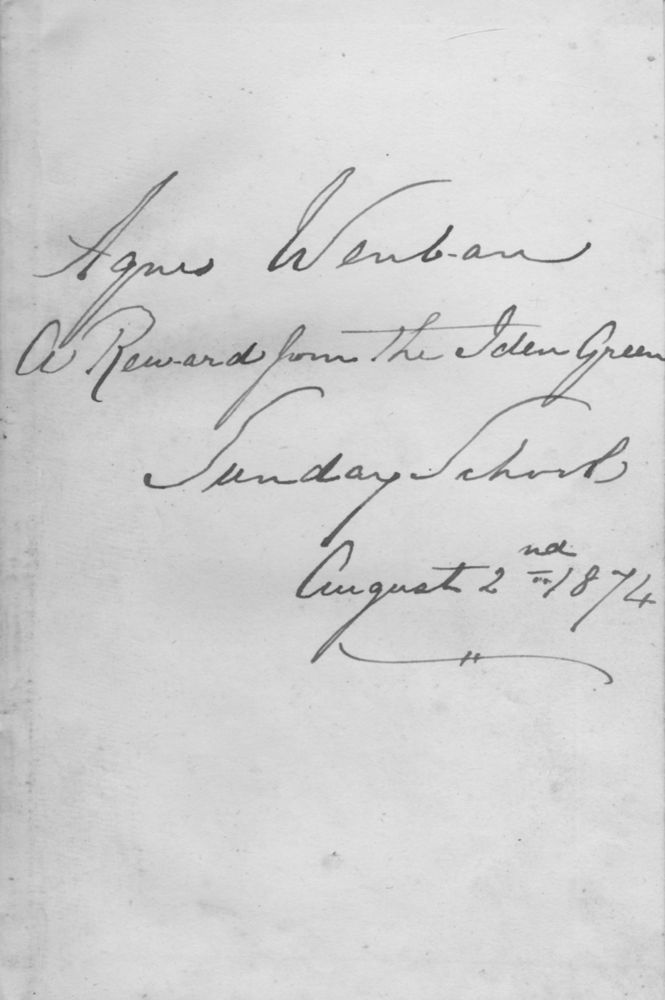 Agnes Wenban
A Reward from the Iden Green
Sunday School
August 2nd 1874